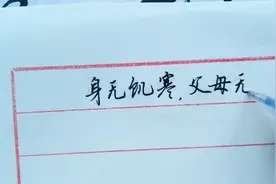 身无饥寒,父母无